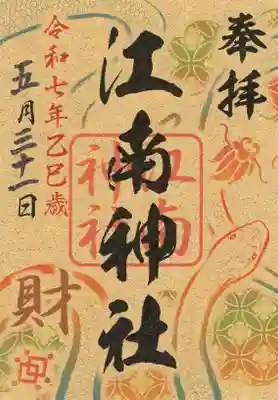 奉拝
江南神社
江南
神社
令和七年乙巳歳
五月三十一日
財